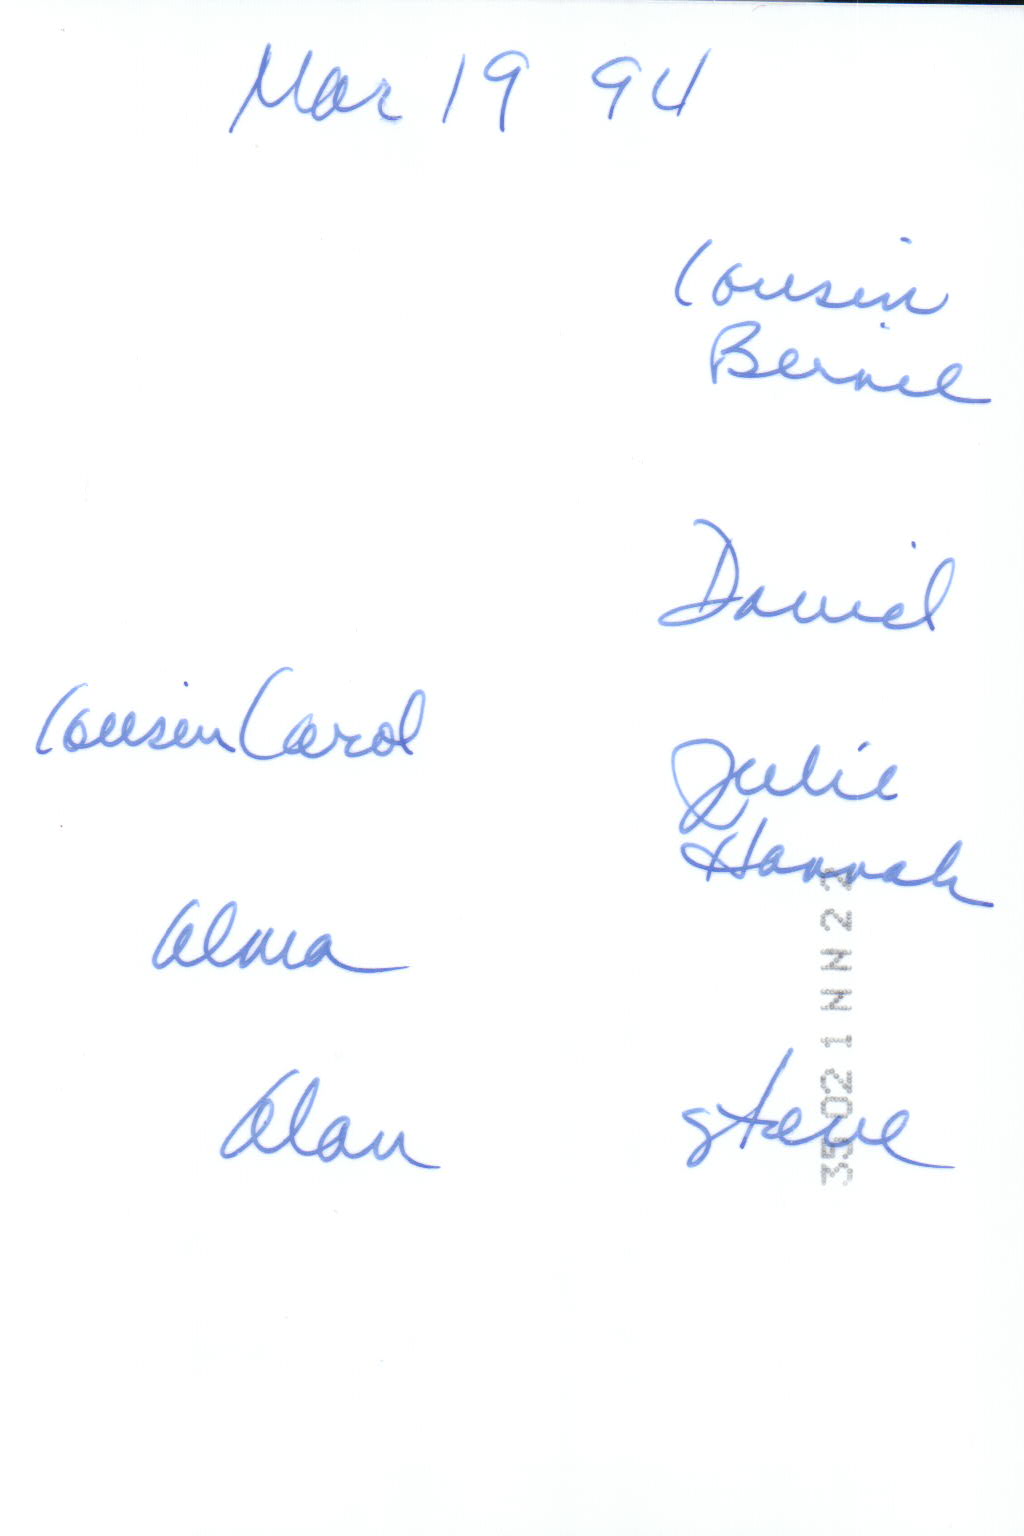 Mar 19 94
Cousin
Bernie
Daniel
Cousin Carol
Julie
Hannah
Alma
Alan
Steve
35 02 1 N N 2 2